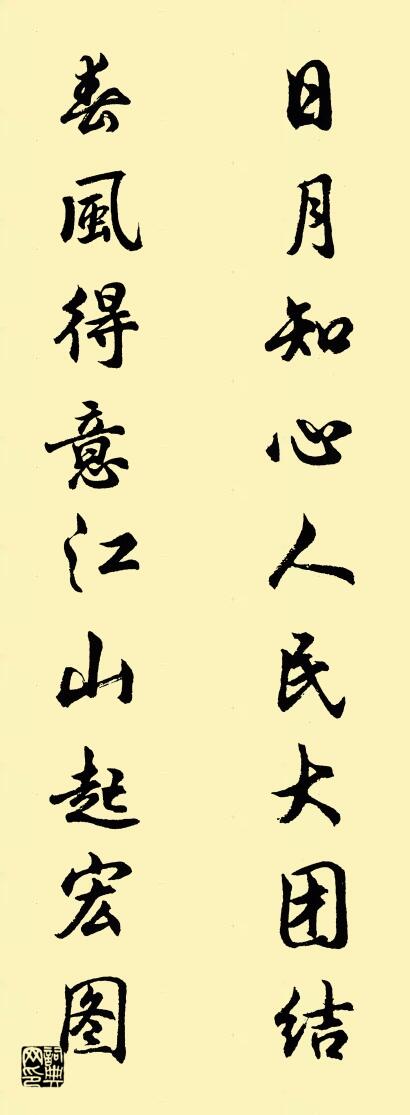 日月知心人民大团结
春風得意江山起宏图